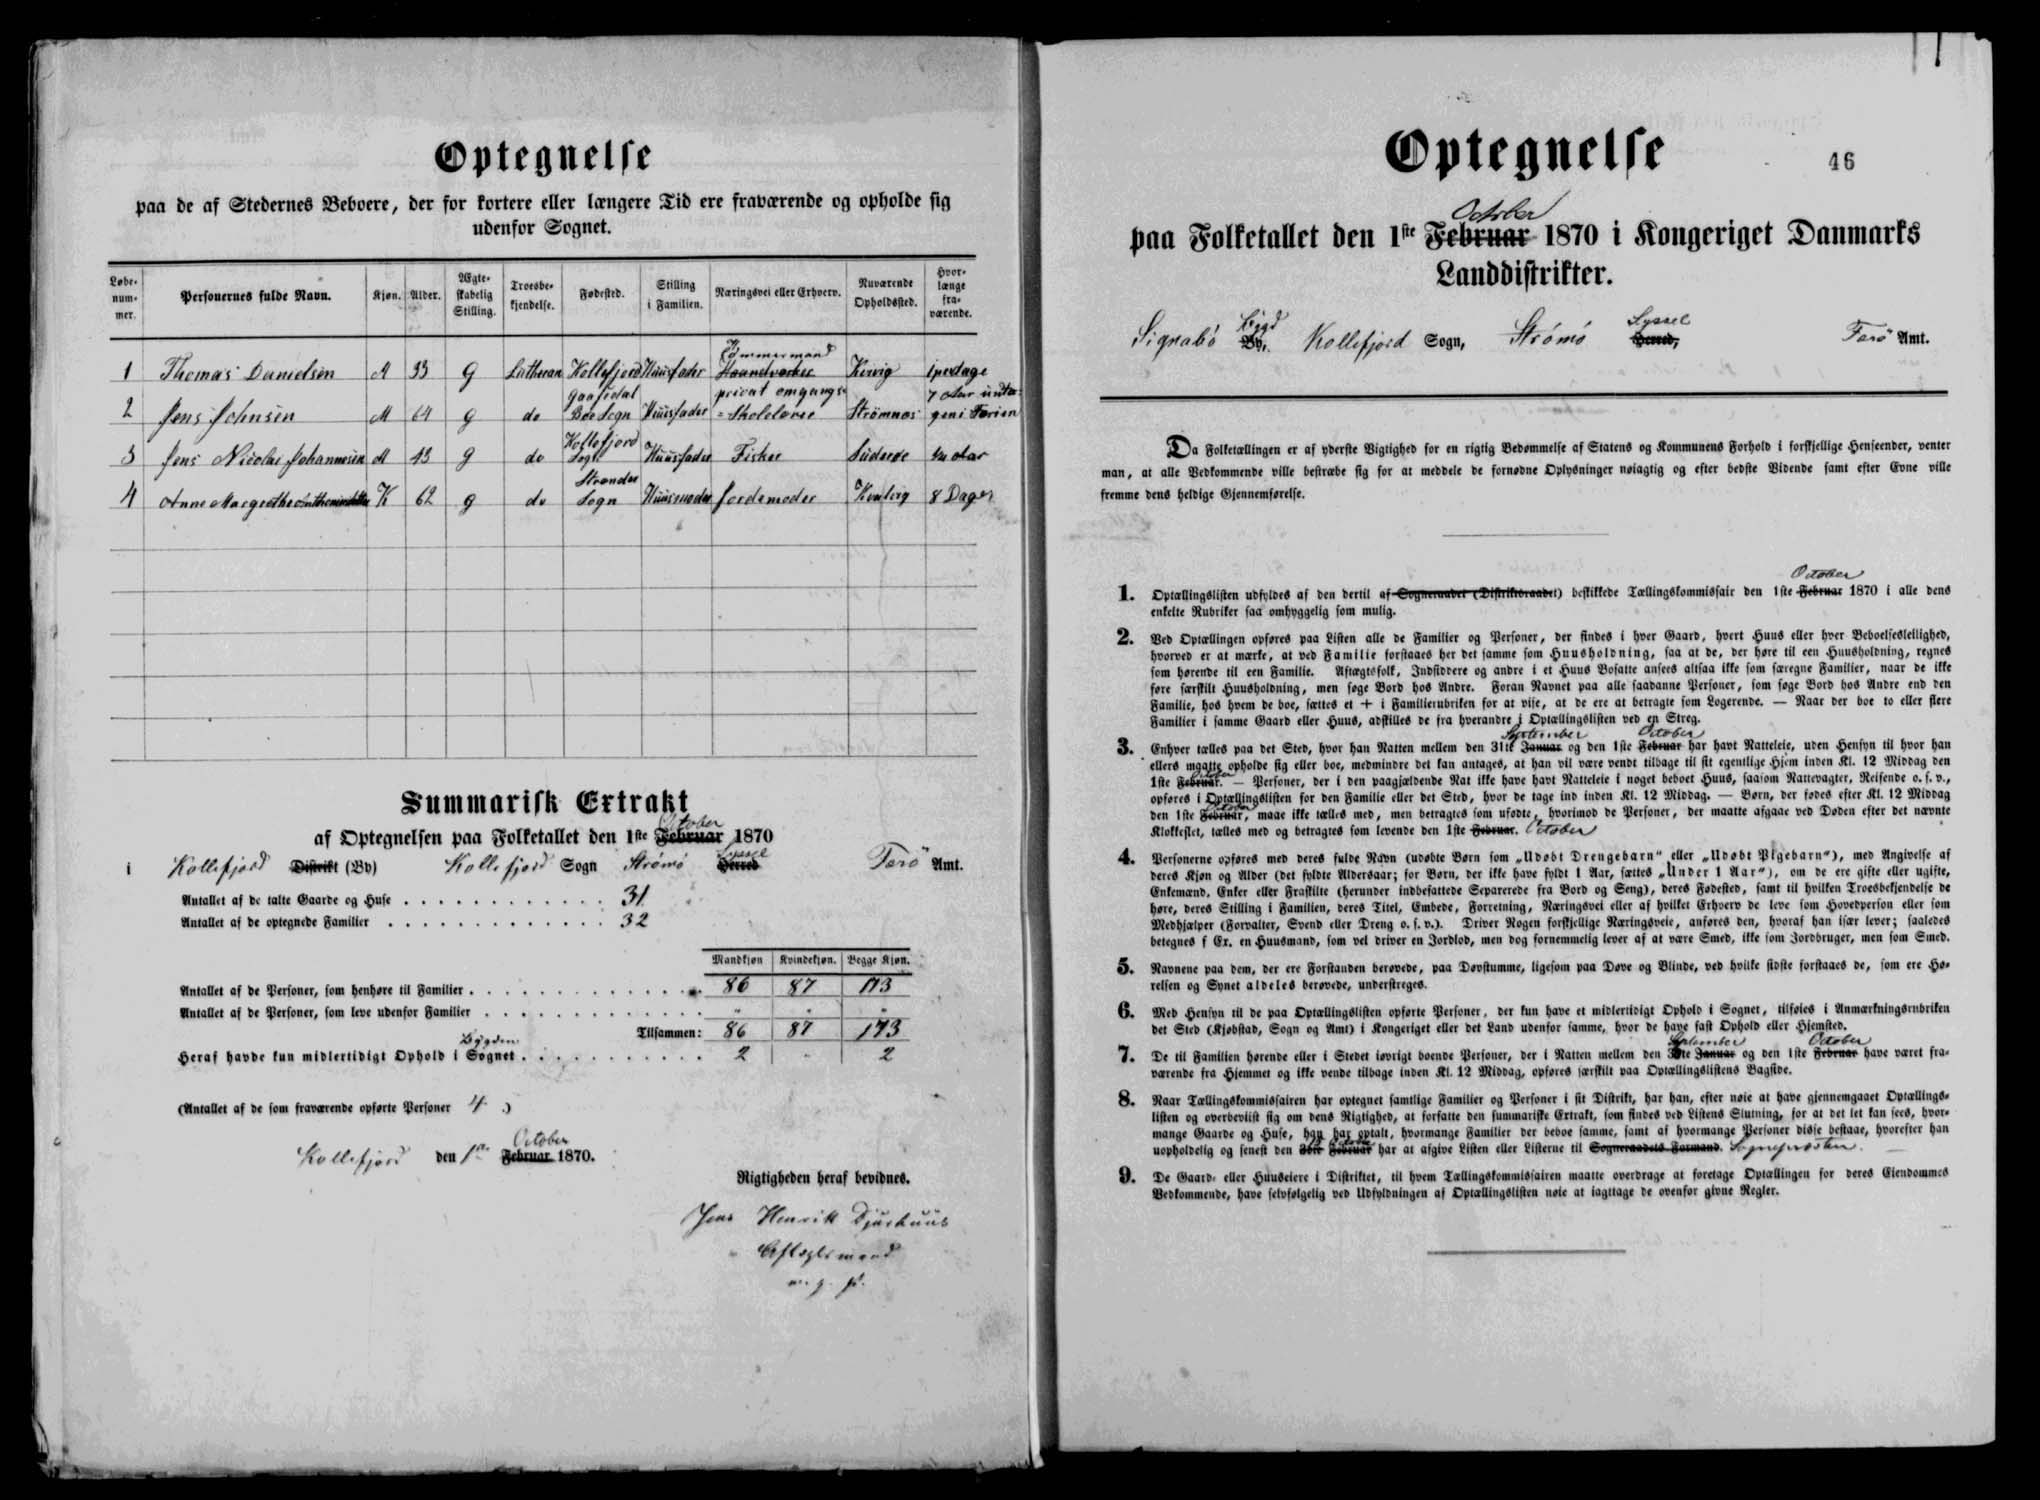 Optegnelse
paa de af Stedernes Beboere, der for kortere eller længere Tid ere fraværende og opholde sig
udenfor Sognet.
Løbe-nummer. Personernes fulde Navn. Kjøn. Alder. Ægteskabelig Stilling. Troesbekjendelse. Fødested. Stilling i Familien. Næringsvei eller Erhverv. Nuværende Opholdssted. Hvorlænge fraværende.
1 Thomas Danielsen M 33 G Lutheran Kollefjord Huusfader Tømmermand Haandværker Kvivig
2 Jens Johnsen M 64 g do Gaasedal Boe Sogn Huusfader privat omgangs-Skolelærer Strømnæs 7 Aar undtagen i Ferien
3 Jens Nicolai Johannesen M 43 g do Kollefjord Sogn Huusfader Fisker Suderøe Aar
4 Anne Margrethe K 62 g do Strander Sogn Huusmoder Jordemoder Kvalvig 8 Dage
Summarisk Extrakt
af Optegnelsen paa Folketallet den 1ste Februar October 1870
i Kollefjord Distrikt (By) Kollefjord Sogn Strømø Herred Syssel Farö Amt.
Antallet af de talte Gaarde og Huse 31
Antallet af de optegnede Familier 32
Mandkjøn Kvindekjøn. Begge Kjøn.
Antallet af de Personer, som henhøre til Familier 86 87 173
Antallet af de Personer, som leve udenfor Familier " " "
Tilsammen: 86 87 173
Heraf havde kun midlertidigt Ophold i Sognet Bygden 2 " 2
(Antallet af de som fraværende opførte Personer 4.)
Kollefjord den 1ste Februar October 1870.
Rigtigheden heraf bevidnes.
Jens Henrik Djurhuus
Aftægtsmand
m. g. p.
Optegnelse
46
October
paa Folketallet den 1ste Februar 1870 i Kongeriget Danmarks
Landdistrikter.
Signabø By, Bygd Kollefjord Sogn, Strømø Herred, Syssel Farö Amt.
Da Folketællingen er af yderste Vigtighed for en rigtig Bedømmelse af Statens og Kommunens Forhold i forskjellige Henseender, venter
man, at alle Vedkommende ville bestræbe sig for at meddele de fornødne Oplysninger nøiagtig og efter bedste Vidende samt efter Evne ville
fremme dens heldige Gjennemførelse.
1. Optællingslisten udfyldes af den dertil af Sogneraadet (Distriktsraadet) beskikkede Tællingskommissair den 1ste Februar October 1870 i alle dens
enkelte Rubriker saa omhyggelig som mulig.
2. Ved Optællingen opføres paa Listen alle de Familier og Personer, der findes i hver Gaard, hvert Huus eller hver Beboelsesleilighed,
hvorved er at mærke, at ved Familie forstaaes her det samme som Huusholdning, saa at de, der høre til een Huusholdning, regnes
som hørende til een Familie. Aftægtsfolk, Indsiddere og andre i et Huus Bosatte ansees altsaa ikke som særegne Familier, naar de ikke
føre særskilt Huusholdning, men søge Bord hos Andre. Foran Navnet paa alle saadanne Personer, som søge Bord hos Andre end den
Familie, hos hvem de boe, sættes et + i Familierubriken for at vise, at de ere at betragte som Logerende. — Naar der boe to eller flere
Familier i samme Gaard eller Huus, adskilles de fra hverandre i Optællingslisten ved en Streg.
3. Enhver tælles paa det Sted, hvor han Natten mellem den 31te Januar September og den 1ste Februar October har havt Natteleie, uden Hensyn til hvor han
ellers maatte opholde sig eller boe, medmindre det kan antages, at han vil være vendt tilbage til sit egentlige Hjem inden Kl. 12 Middag den
1ste Februar October. — Personer, der i den paagjældende Nat ikke have havt Natteleie i noget beboet Huus, saasom Nattevagter, Reisende o. s. v.,
opføres i Optællingslisten for den Familie eller det Sted, hvor de tage ind inden Kl. 12 Middag. — Børn, der fødes efter Kl. 12 Middag
den 1ste Februar October, maae ikke tælles med, men betragtes som ufødte, hvorimod de Personer, der maatte afgaae ved Døden efter det nævnte
Klokkeslet, tælles med og betragtes som levende den 1ste Februar. October
4. Personerne opføres med deres fulde Navn (udøbte Børn som „Udøbt Drengebarn" eller „Udøbt Pigebarn"), med Angivelse af
deres Kjøn og Alder (det fyldte Aldersaar; for Børn, der ikke have fyldt 1 Aar, sættes „Under 1 Aar"), om de ere gifte eller ugifte,
Enkemænd, Enker eller Fraskilte (herunder indbefattede Separerede fra Bord og Seng), deres Fødested, samt til hvilken Troesbekjendelse de
høre, deres Stilling i Familien, deres Titel, Embede, Forretning, Næringsvei eller af hvilket Erhverv de leve som Hovedperson eller som
Medhjælper (Forvalter, Svend eller Dreng o. s. v.). Driver Nogen forskjellige Næringsveie, anføres den, hvoraf han især lever; saaledes
betegnes f Ex. en Huusmand, som vel driver en Jordlod, men dog fornemmelig lever af at være Smed, ikke som Jordbruger, men som Smed.
5. Navnene paa dem, der ere Forstanden berøvede, paa Døvstumme, ligesom paa Døve og Blinde, ved hvilke sidste forstaaes de, som ere Hø-
relsen og Synet aldeles berøvede, understreges.
6. Med Hensyn til de paa Optællingslisten opførte Personer, der kun have et midlertidigt Ophold i Sognet, tilføies i Anmærkningsrubriken
det Sted (Kjøbstad, Sogn og Amt) i Kongeriget eller det Land udenfor samme, hvor de have fast Ophold eller Hjemsted.
7. De til Familien hørende eller i Stedet iøvrigt boende Personer, der i Natten mellem den 31te Januar September og den 1ste Februar October have været fra-
værende fra Hjemmet og ikke vende tilbage inden Kl. 12 Middag, opføres særskilt paa Optællingslistens Bagside.
8. Naar Tællingskommissairen har optegnet samtlige Familier og Personer i sit Distrikt, har han, efter nøie at have gjennemgaaet Optællings-
listen og overbeviist sig om dens Rigtighed, at forfatte den summariske Extrakt, som findes ved Listens Slutning, for at det let kan sees, hvor-
mange Gaarde og Huse, han har optalt, hvormange Familier der beboe samme, samt af hvormange Personer disse bestaae, hvorefter han
uopholdelig og senest den Februar har at afgive Listen eller Listerne til Sogneraadets Formand. Sognepræsten.
9. De Gaard- eller Huuseiere i Distriktet, til hvem Tællingskommissairen maatte overdrage at foretage Optællingen for deres Eiendommes
Vedkommende, have selvfølgelig ved Udfyldningen af Optællingslisten nøie at iagttage de ovenfor givne Regler.